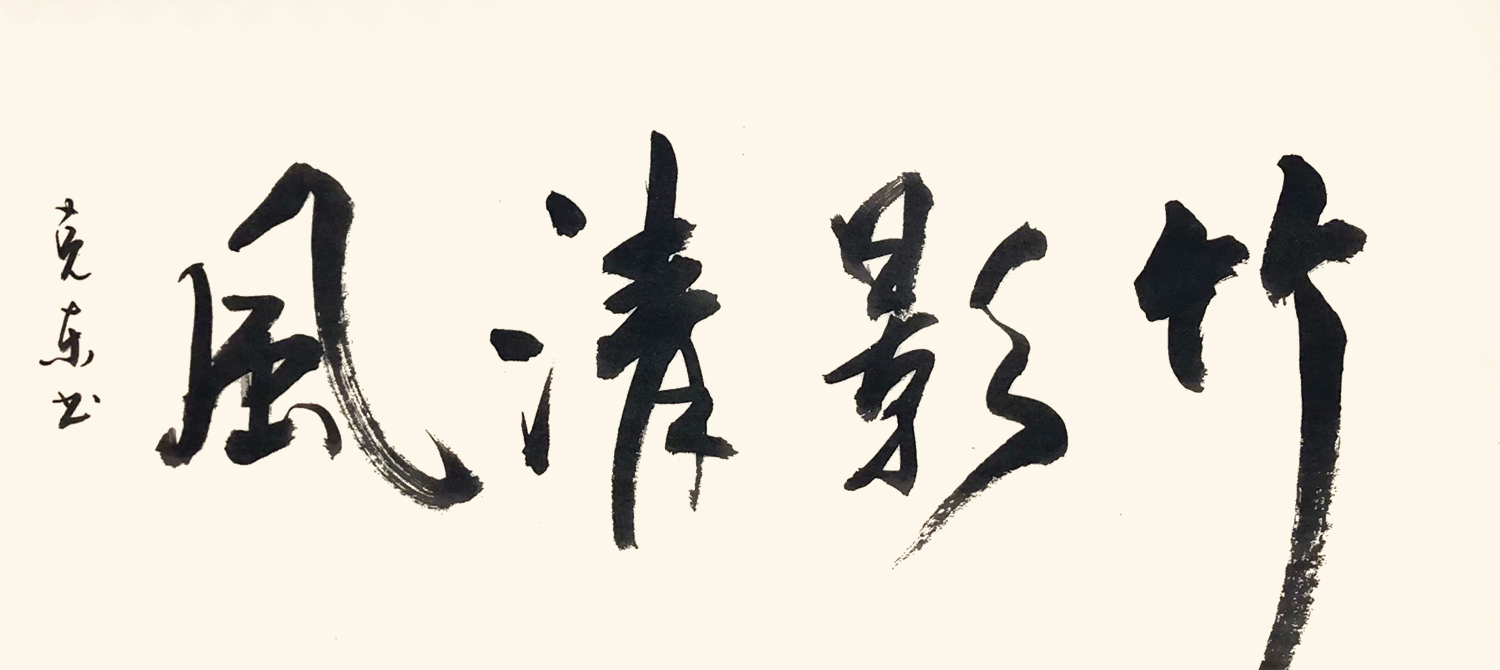 竹影清風
克东书